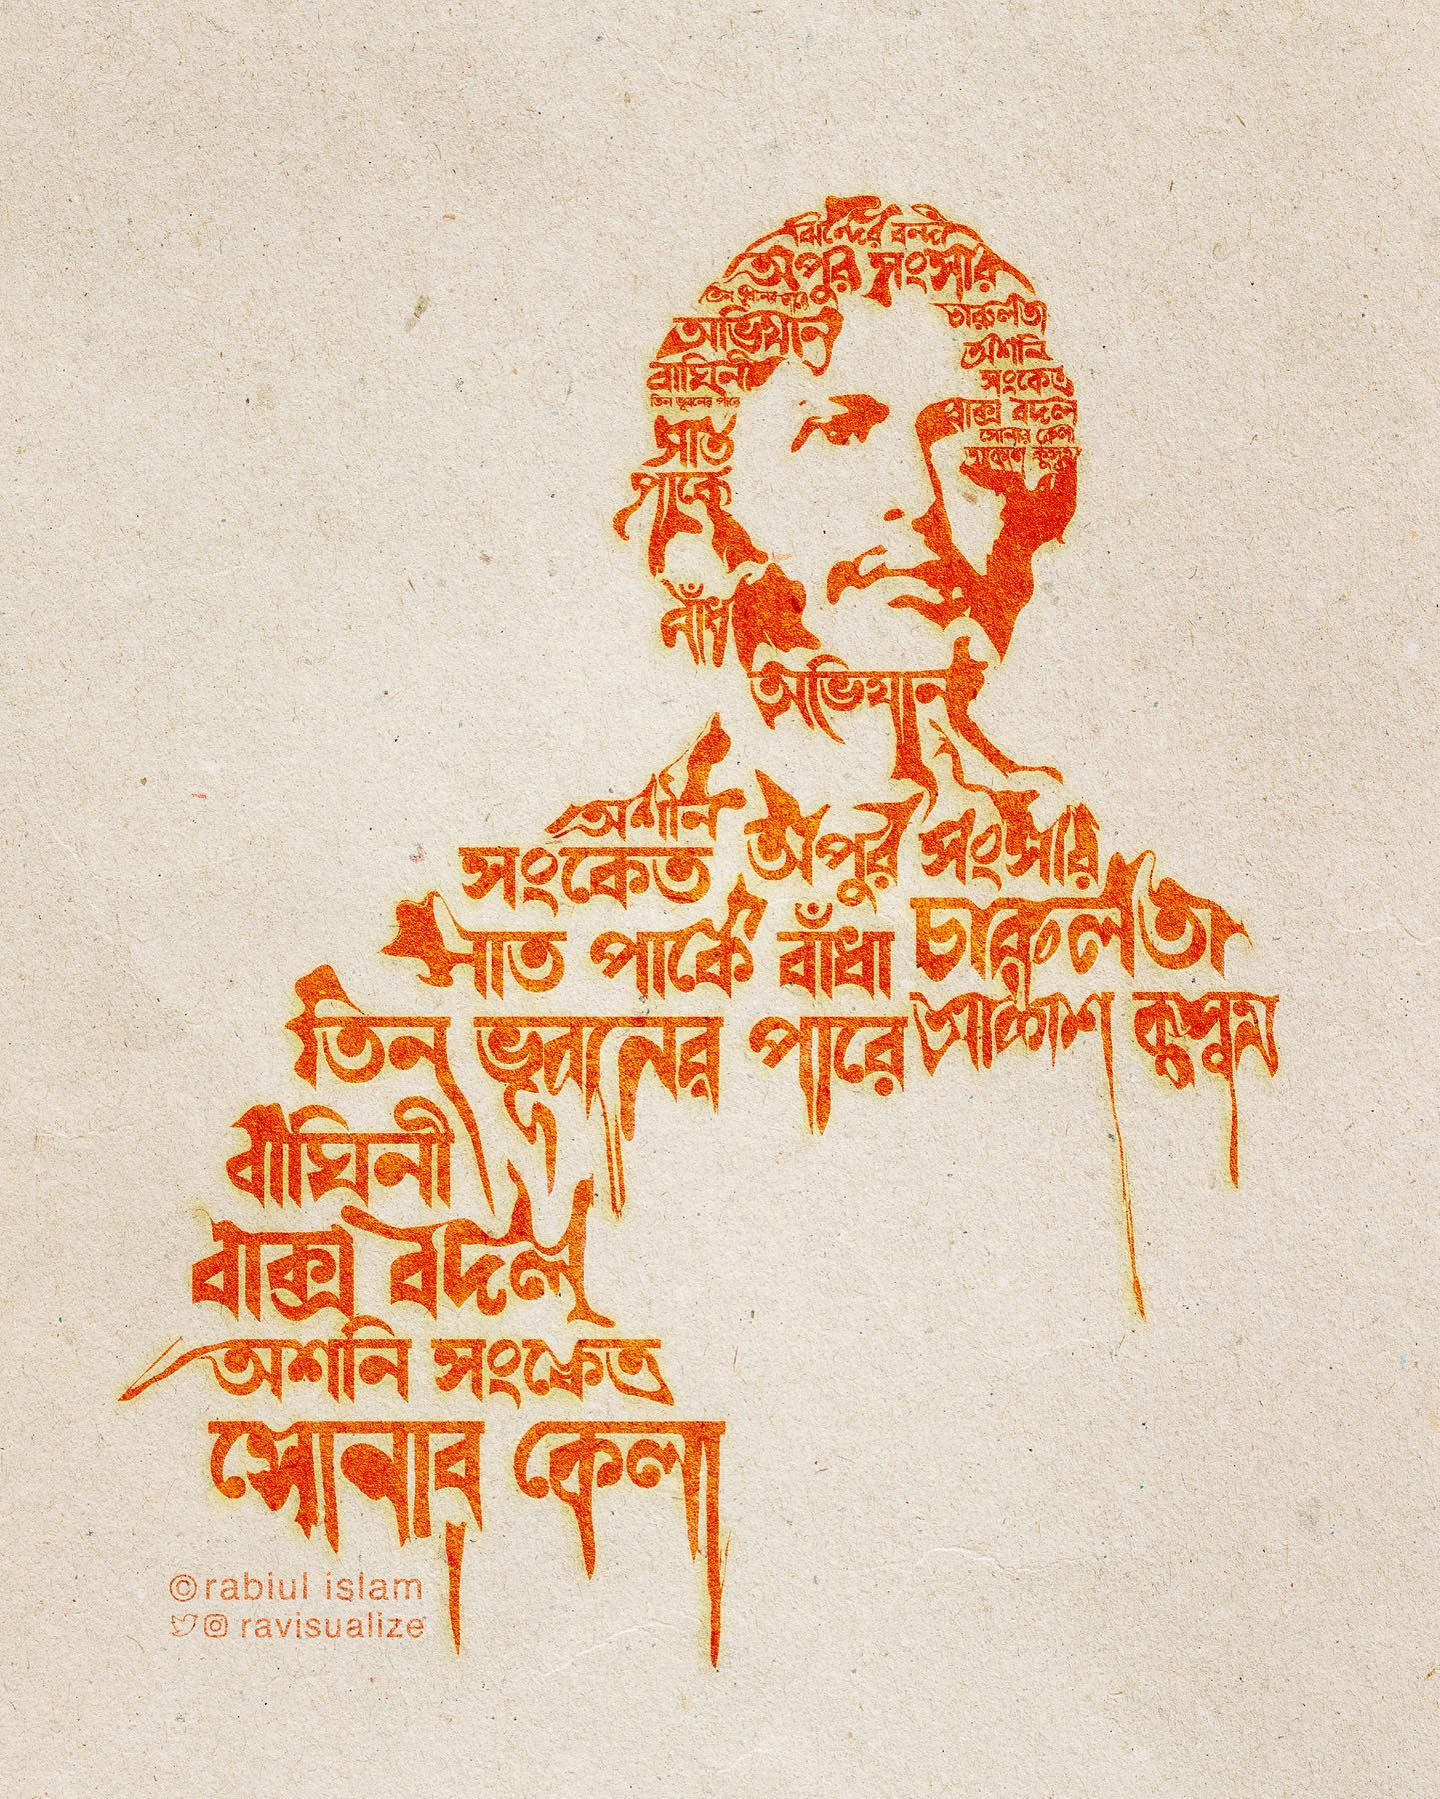 ঝিন্দের বন্দী
অপুর সংসার
তিন ভূবনের পারে
অভিযান
চারুলতা
বাঘিনী
অশনি
সংকেত
তিন ভূবনের পারে
বাক্স বদল
সাত
সোনার কেলা
আকাশ কুসুম
পাকে
বাঁধা
অভিযান
অশনি
সংকেত
অপুর সংসার
সাত পাকে বাঁধা
চারুলতা
তিন ভূবনের পারে
আকাশ কুসুম
বাঘিনী
বাক্স বদল
অশনি সংকেত
সোনার কেলা
©rabiul islam
ravisualize